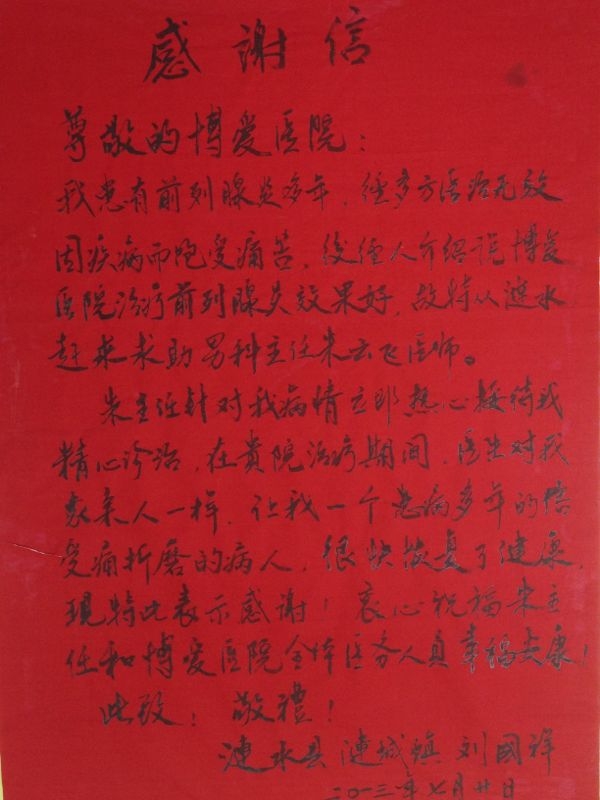 感謝信
尊敬的博爱医院：
我患有前列腺炎多年，经多方医治无效
因疾病而饱受痛苦，後经人介绍说博爱
医院治疗前列腺炎效果好，故特从涟水
赶来求助男科主任朱云飞医师。
朱主任针对我病情立即热心接待我
精心诊治，在貴院治疗期间，医生对我
象亲人一样，让我一个患病多年的倍
受痛折磨的病人，很快恢复了健康，
現特此表示感谢！衷心祝福朱主
任和博爱医院全体医务人員幸福安康！
此致！敬禮！
涟水县涟城镇刘國祥
二〇一三年七月廿日